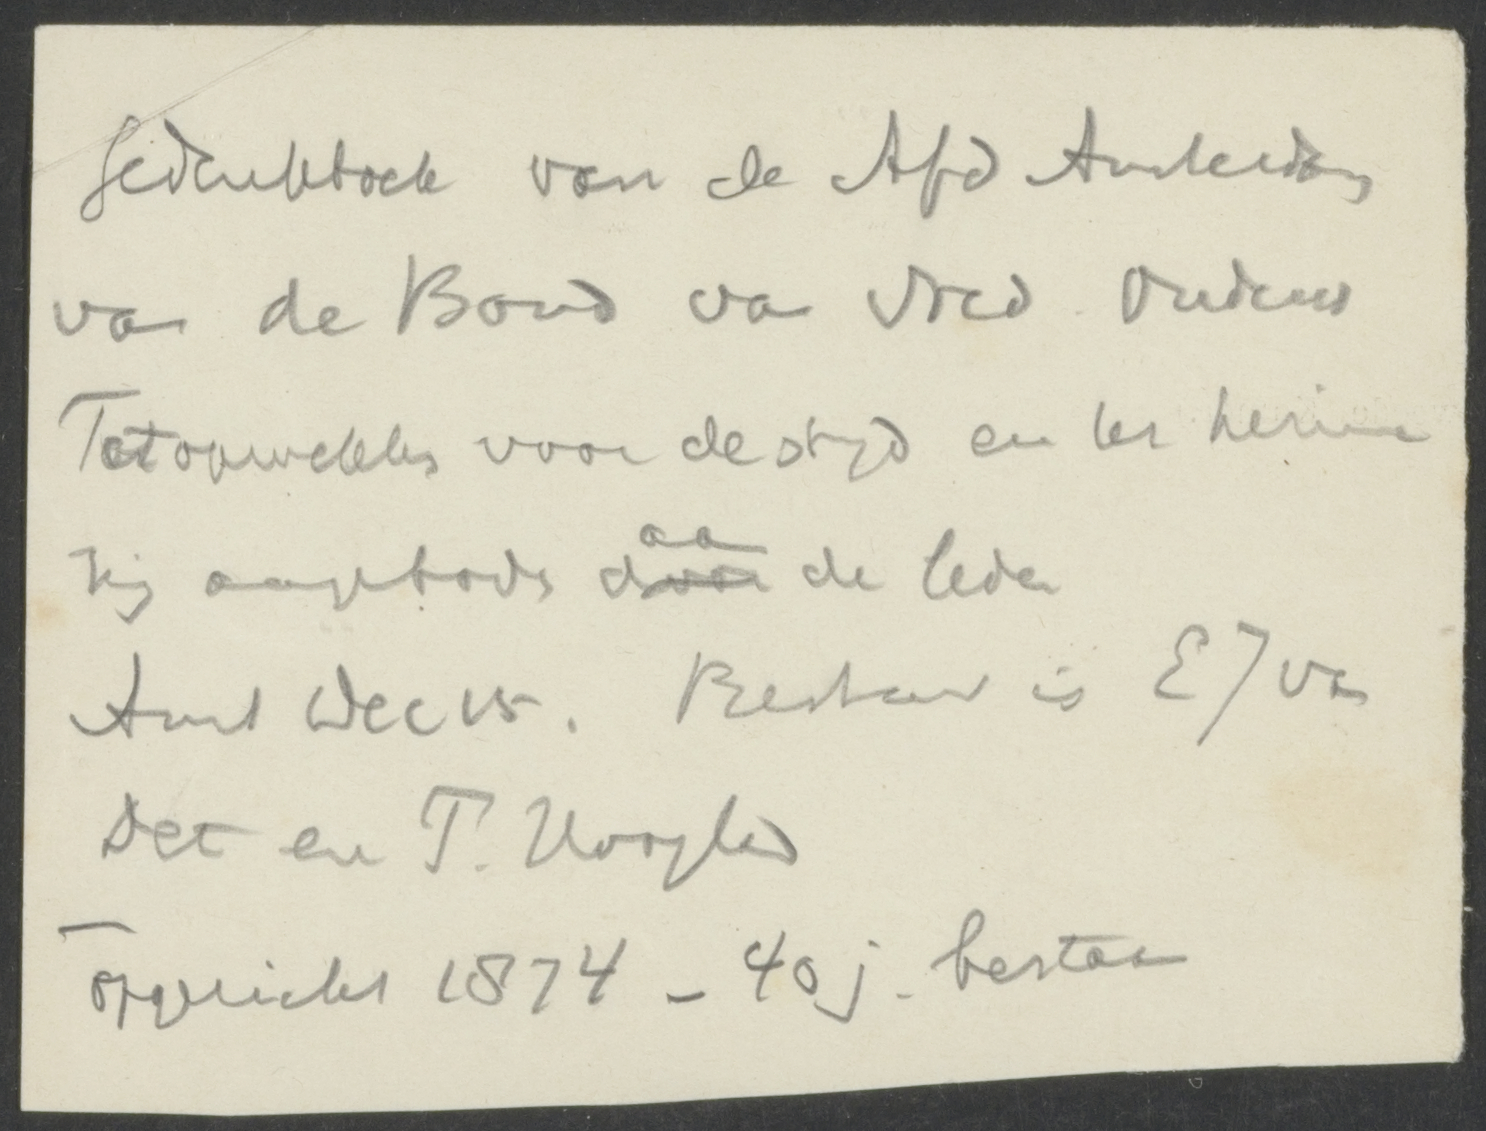 Gedenkboek van de Afd Amsterdam
van de Bond van Ned. Onderw
Tot opwekking voor de strijd en ter herinne
ring aangeboden aan de leden
Amst Dec 15. Bestuur is E J van
Det en T.
opgericht 1874 - 40 j. bestaan